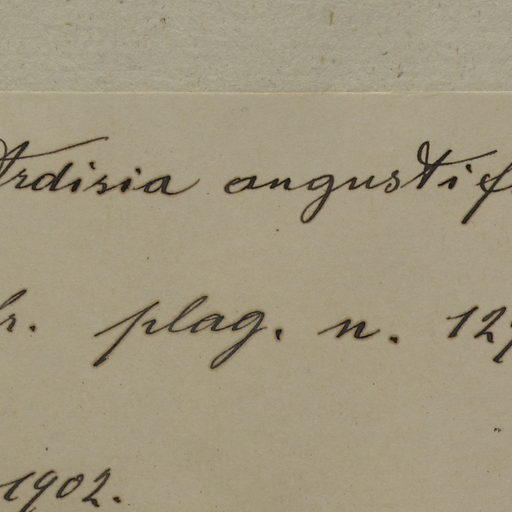 Ardisia angustif
br. plag. n. 127
1902.